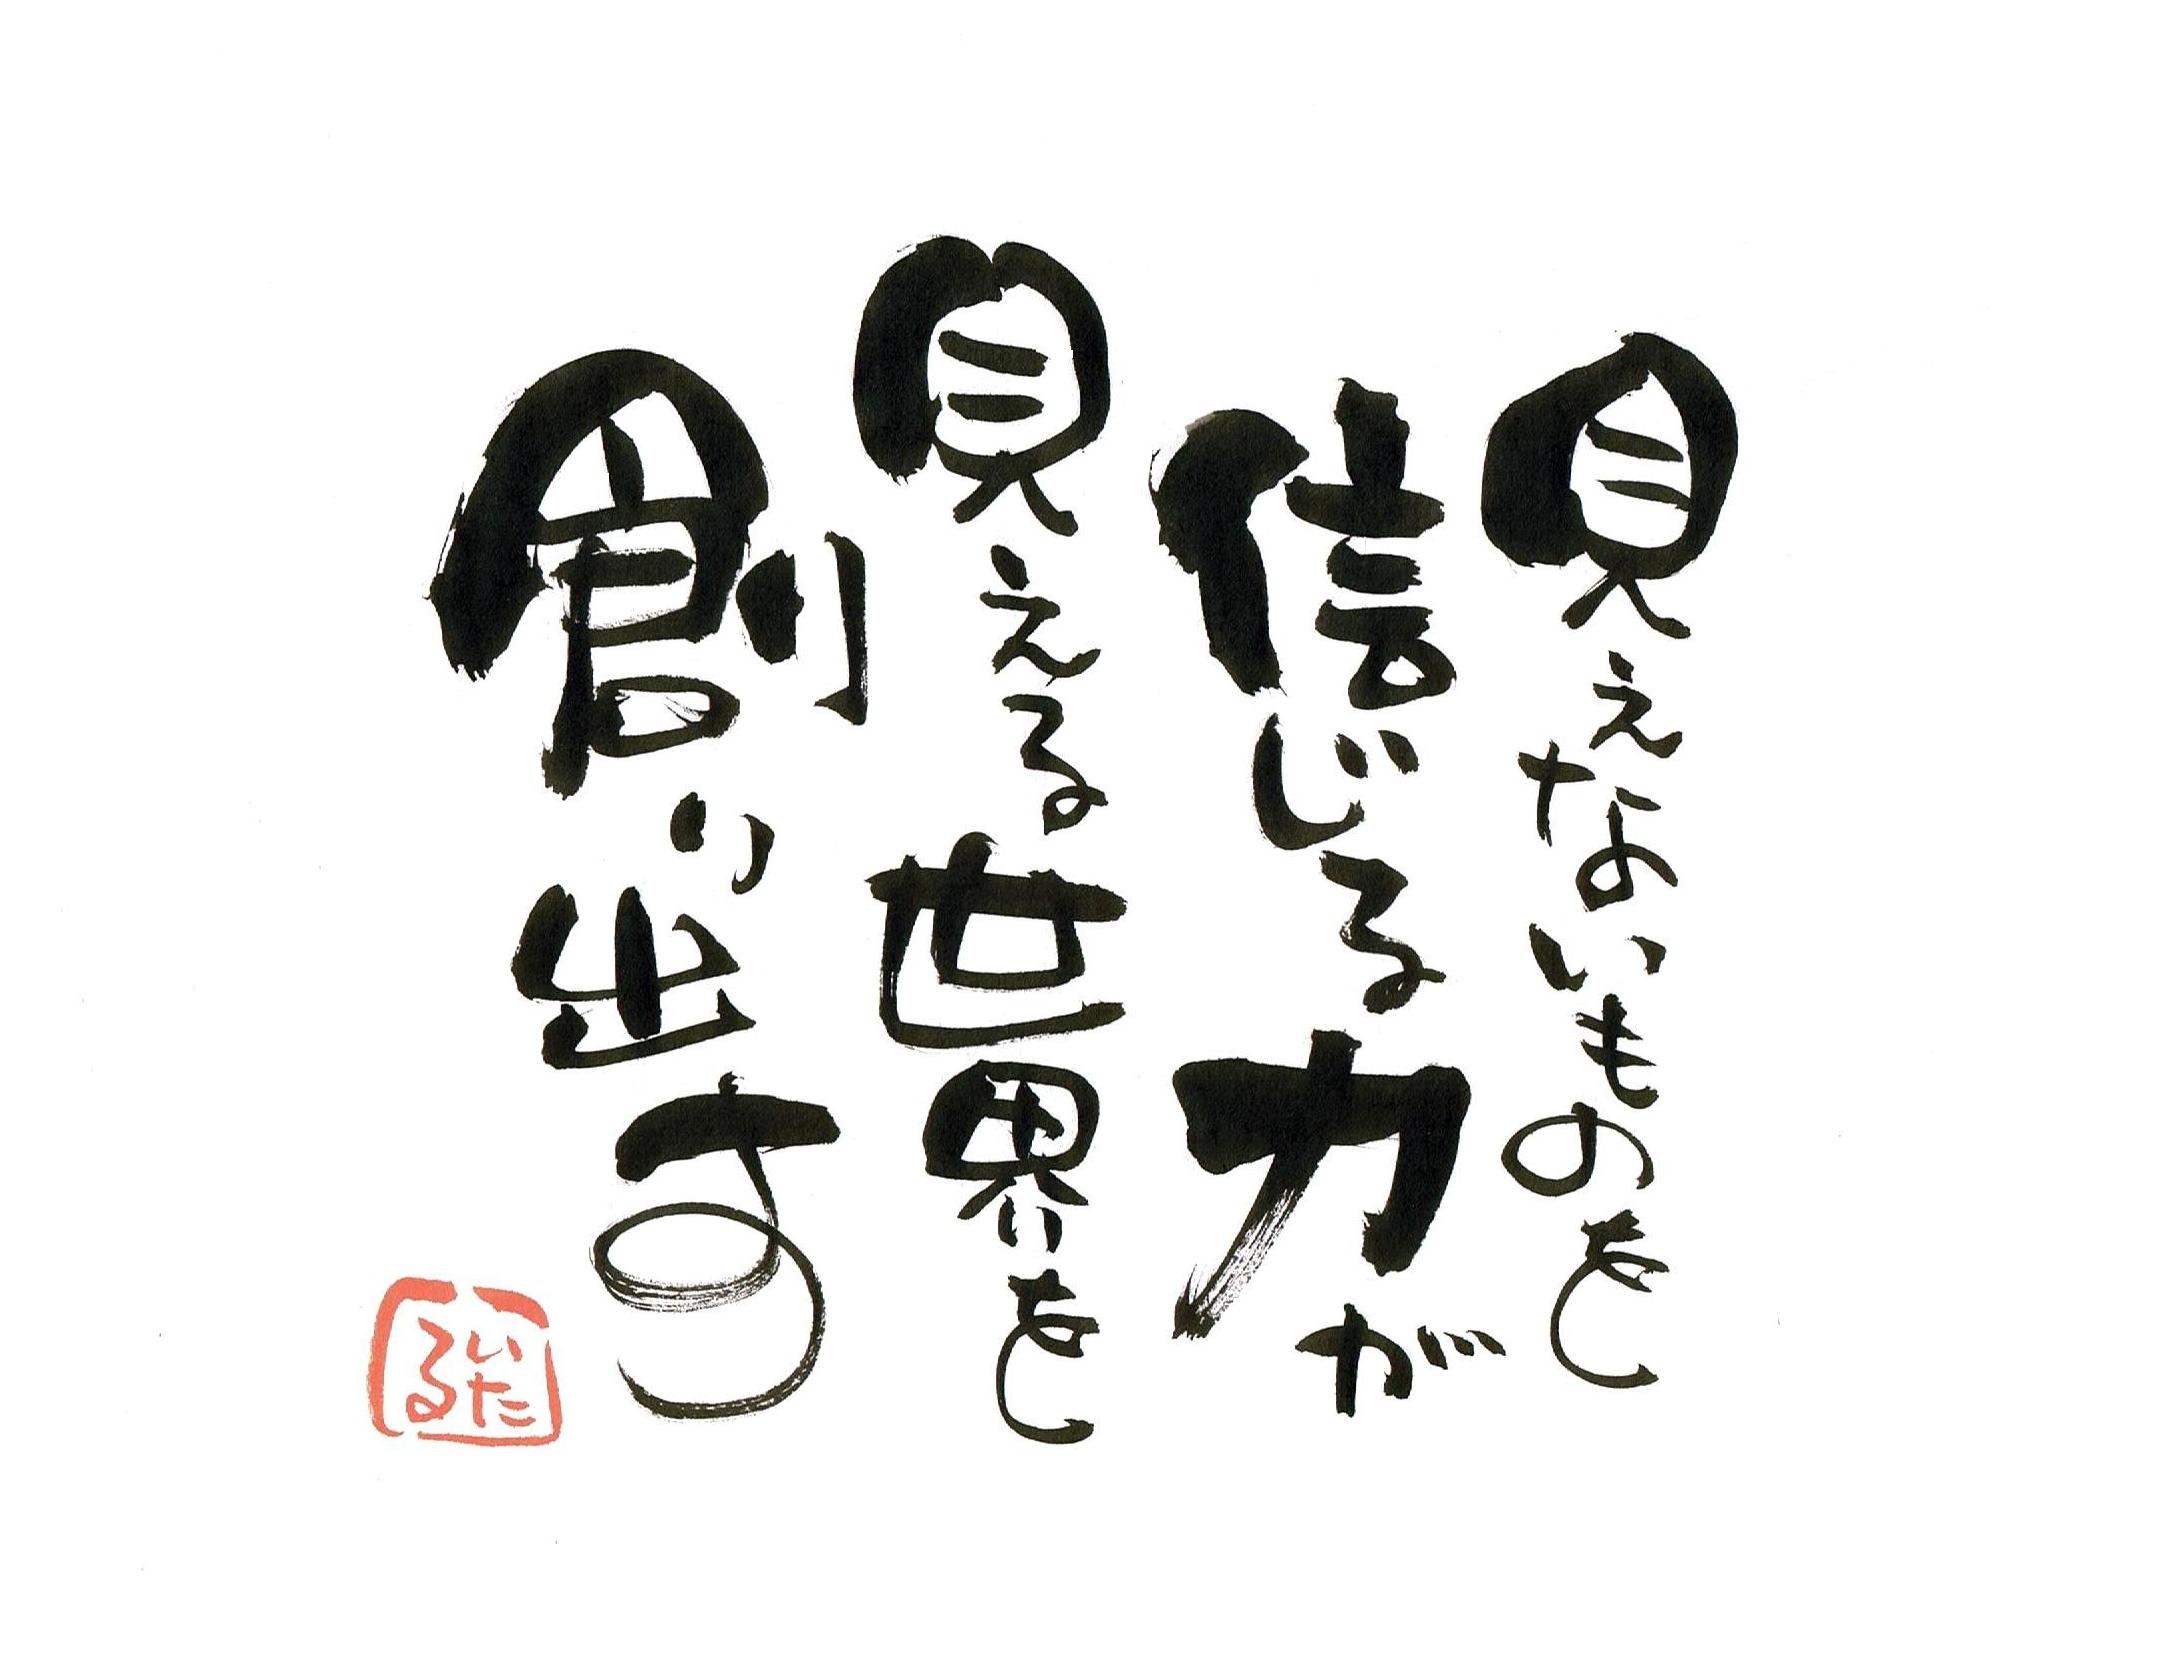 見えないものを
信じる力が
見える世界を
創り出す
いたる